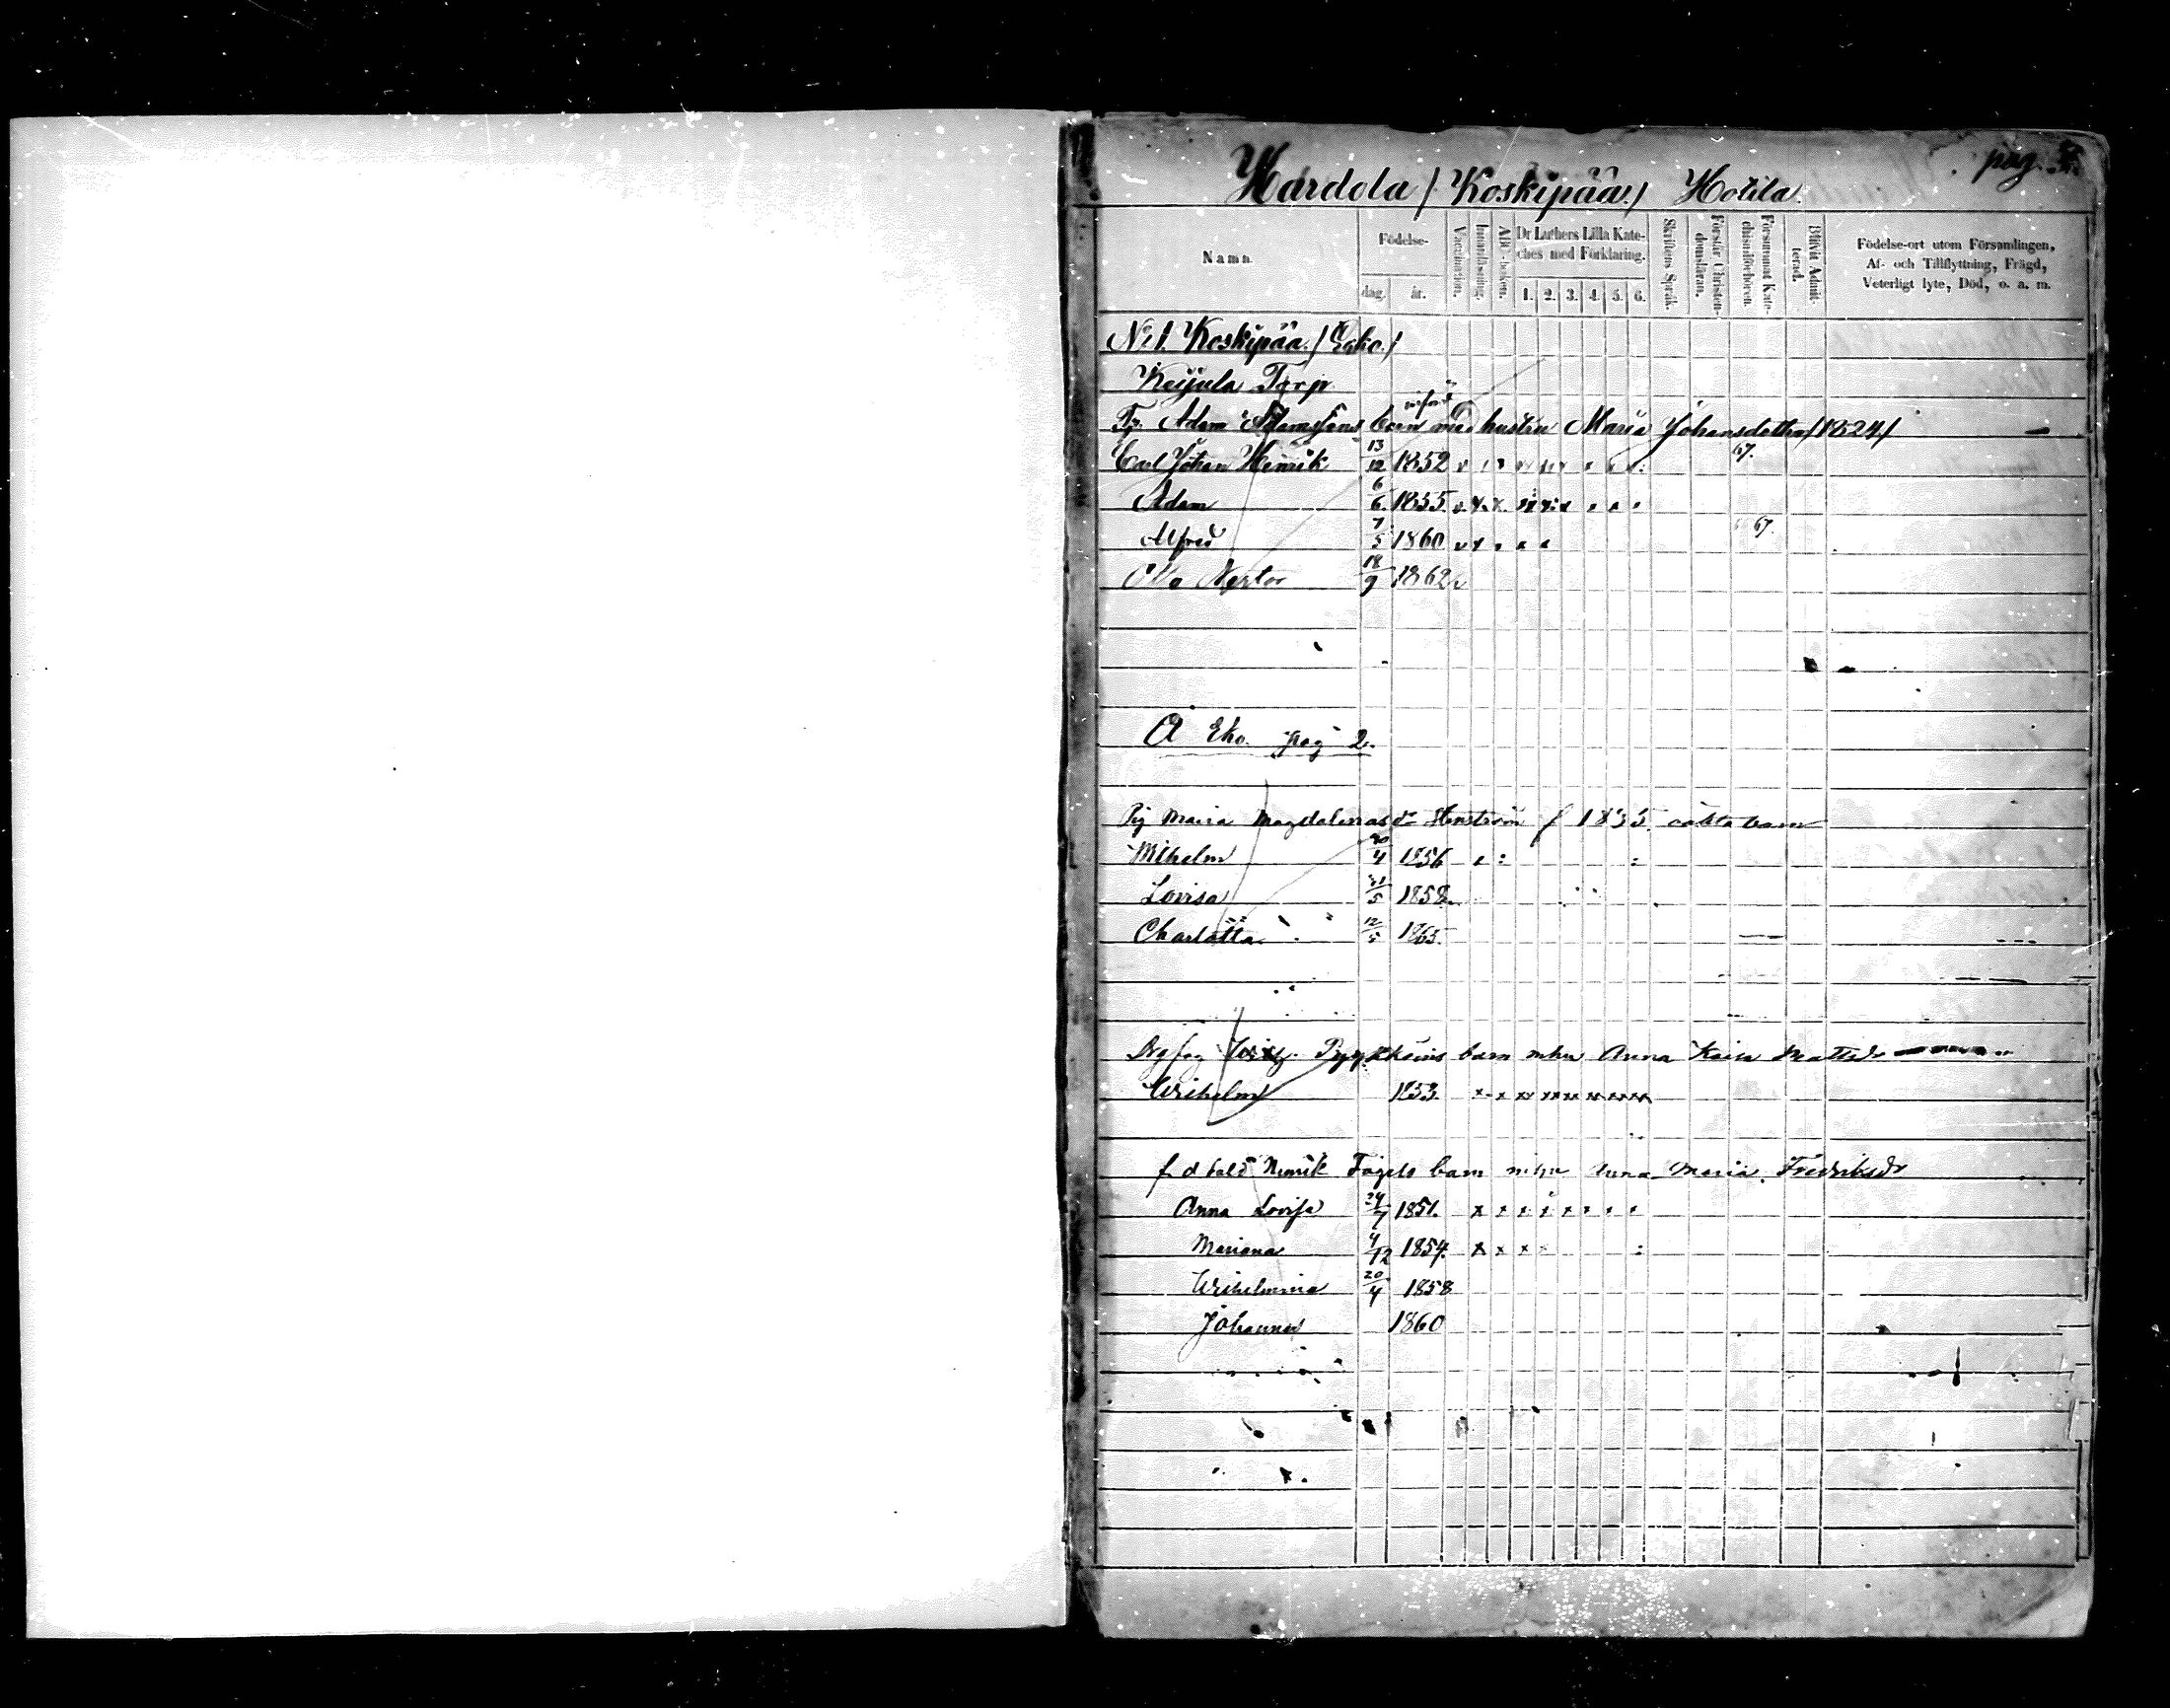 pag.
Hardola / Koskipää / Hotila.
Namn.
Födelse-
dag.
år.
Vaccination.
Innanläsning.
ABC-boken.
Dr Luthers Lilla Kate-
ches med Förklaring.
1. 2. 3. 4. 5. 6.
Skriftens Språk.
Förstår Christen-
domsläran.
Försummat Kate-
chismiförhören.
Blifvit Admit-
terad.
Födelse-ort utom Församlingen,
Af- och Tillflyttning, Frägd,
Veterligt lyte, Död, o. a. m.
No 1. Koskipää. /
Keijula Torp
Adam Adamssons barn med hustru Maria Johansdotter /1824/
Carl Johan Henrik 13/12 1852 67.
Adam 6/6 1855
Alfred 7/5 1860 67.
Otto Nestor 18/9 1862
pag 2.
Pig Maria Magdalena 1835 oäkta barn
Wilhelm 20/4 1856
Lovisa 21/5 1858
Charlotta 12/5 1865
barn mhu Anna Kaisa
Wilhelm 1853.
f. d. Henrik barn mhu Anna Maria Fredriksdr
Anna Lovisa 24/7 1851.
Mariana 4/12 1854.
Wilhelmina 20/4 1858
Johanna 1860